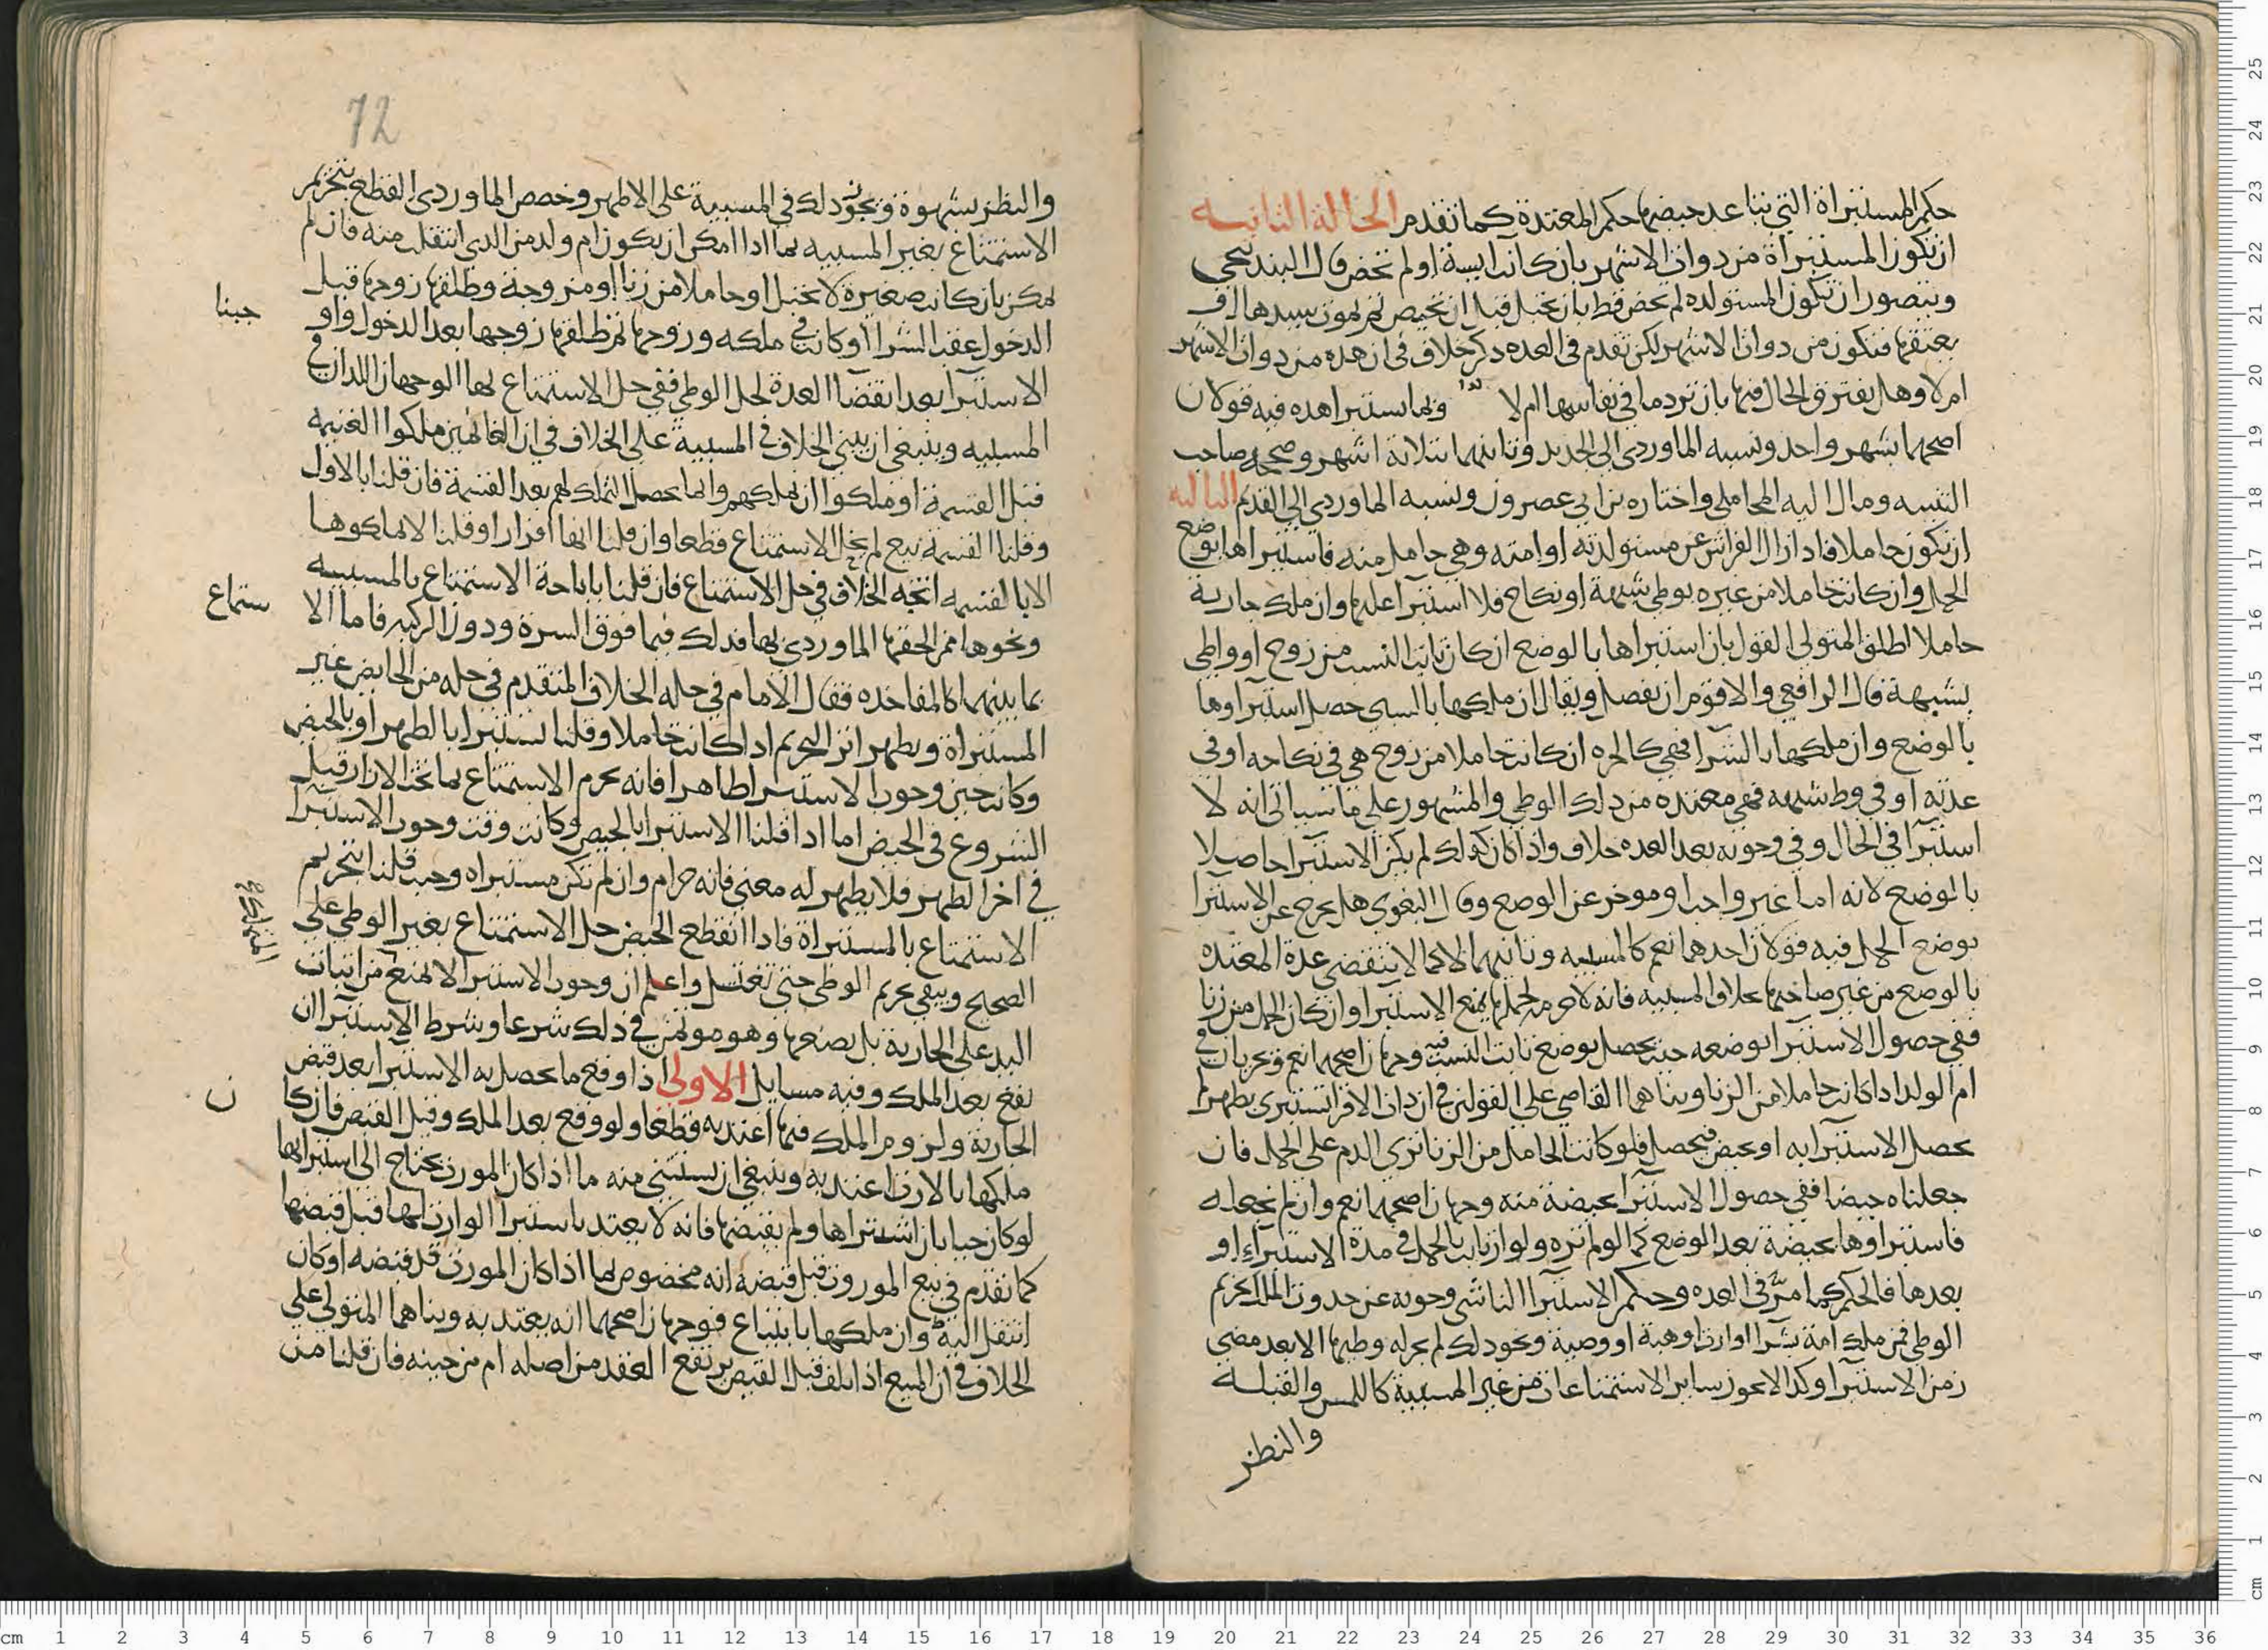 حكم المستبراة التي تباعد حيضها حكم المعتدة كما تقدم الحالة الثانية
ان تكون المستبراة من ذوات الاشهر بان كانت ايسة او لم تحض قال البندنيجي
ويتصور ان تكون المستولدة لم تحض قط بان تحبل قبل ان تحيض ثم يموت سيدها او
يعتقها فتكون من ذوات الاشهر لكن تقدم في العدة ذكر خلاف في ان هذه من ذوات الاشهر
ام لا وهل يفترق الحال فيها بان تر دما في نفاسها ام لا وبما تستبرا هذه فيه قولان
اصحهما بشهر واحد ونسبه الماوردي الى الجديد وثانيهما بثلاثة اشهر وصححه صاحب
التنبيه ومال اليه المحاملي واختاره بن ابي عصرون ونسبه الماوردي الى القديم الثالثة
ان تكون حاملا فاذا زال الفراش عن مستولدته او امته وهي حامل منه فاستبراها بوضع
الحمل وان كانت حاملا من غيره بوطي شبهة او نكاح فلا استبرا عليها وان ملك جارية
حاملا اطلق المتولي القول بان استبراها بالوضع ان كان ثابت النسب من زوج او واطي
بشبهة قال الرافعي والاقوم ان يفصل ويقال ان ملكها بالسبي حصل استبراوها
بالوضع وان ملكها بالشرا فهي كالحرة ان كانت حاملا من زوج هي في نكاحه او في
عدته او في وط شبهة فهي معتدة من ذلك الوطي والمشهور على ما سياتي انه لا
استبرا في الحال وفي وجوبه بعد العدة خلاف واذا كان كذلك لم يكن الاستبرا حاصلا
بالوضع لانه اما غير واجب او موخر عن الوضع وقال البغوي هل يخرج عن الاستبرا
بوضع الحمل فيه قولان احدهما نعم كالمسبية وثانيهما لا كما لا تنقضي عدة المعتدة
بالوضع من غير صاحبها بخلاف المسبية فانه لا حرمة لحملها يمنع الاستبرا وان كان الحمل من زنا
ففي حصول الاستبرا بوضعه حيث يحصل بوضع ثابت النسب فيه وجهان اصحهما نعم ويجريان في
ام الولد اذا كانت حاملا من الزنا وبناهما القاضي على القولين في ان ذات الاقرا تستبري بطهر لا
يحصل الاستبرا به او بحيض فيحصل فلو كانت الحامل من الزنا ترى الدم على الحمل فان
جعلناه حيضا ففي حصول الاستبرا بحيضة منه وجهان اصحهما نعم وان لم نجعله
فاستبراوها بحيضة بعد الوضع كما لو لم تره ولو ارتابت بالحمل في مدة الاستبراء او
بعدها فالحكم كما مر في العدة وحكم الاستبرا الناشي وجوبه عن حدوث الملك تحريم
الوطي فمن ملك امة بشرا او ارث او هبة او وصية ونحو ذلك لم يحل له وطيها الا بعد مضي
زمن الاستبرا وكذا لا يجوز سائر الاستمتاعات من غير المسبية كاللمس والقبلة
والنظر
72
والنظر بشهوة ويجوز ذلك في المسبية على الاظهر وخصص الماوردي القطع بتحريم
الاستمتاع بغير المسبية بما اذا امكن ان يكون ام ولد من الذي انتقل منه فان لم
يمكن بان كانت صغيرة لا تحبل او حاملا من زنا او مزوجة وطلقها زوجها قبل
الدخول عقب الشرا او كانت في ملكه وزوجها ثم طلقها زوجها بعد الدخول واو
جبنا
الاستبرا بعد انقضا العدة لحل الوطي ففي حل الاستمتاع بها الوجهان اللذان في
المسبية وينبغي ان يبنى الخلاف في المسبية على الخلاف في ان الغانمين ملكوا الغنيمة
قبل القسمة او ملكوا ان يملكهم وانما يحصل التملك لهم بعد القسمة فان قلنا بالاول
وقلنا القسمة بيع لم يحل الاستمتاع قطعا وان قلنا انها افراز او قلنا لا يملكوها
الا بالقسمة اتجه الخلاف في حل الاستمتاع فان قلنا باباحة الاستمتاع بالمسبية
ونحوها ممن الحقها الماوردي بها فذلك فيما فوق السرة ودون الركبة فاما الا
ستماع
بما بينهما كالمفاخذة فقال الامام في حله الخلاف المتقدم في حله من الحايض غير
المستبراة ويظهر اثر التحريم اذا كانت حاملا وقلنا تستبرا بالطهر او بالحيض
وكانت حين وجوب الاستبرا طاهرا فانه يحرم الاستمتاع بما تحت الازار قبل
الشروع في الحيض اما اذا قلنا الاستبرا بالحيض وكانت وقت وجوب الاستبرا
في اخر الطهر فلا يظهر له معنى فانه حرام وان لم تكن مستبراة وحيث قلنا بتحريم
الاستمتاع بالمستبراة فاذا انقطع الحيض حل الاستمتاع بغير الوطي على
الصحيح ويبقى تحريم الوطي حتى تغتسل واعلم ان وجوب الاستبرا لا يمنع من اثبات
اليد على الجارية بل يضعها وهو موتمن في ذلك شرعا وشرط الاستبرا ان
يقع بعد الملك وفيه مسايل الاولى اذا وقع ما يحصل به الاستبرا بعد قبض
الجارية ولزوم الملك فيها اعتد به قطعا ولو وقع بعد الملك وقبل القبض فان كا
ن
ملكها بالارث اعتد به وينبغي ان يستثنى منه ما اذا كان المورث يحتاج الى استبرايها
لو كان حيا بان اشتراها ولم يقبضها فانه لا يعتد باستبرا الوارث لها قبل قبضها
كما تقدم في بيع الموروث قبل قبضه انه مخصوص بما اذا كان المورث قد قبضه او كان
انتقل اليه وان ملكها بابتياع فوجهان اصحهما انه يعتد به وبناهما المتولي على
الخلاف في ان المبيع اذا تلف قبل القبض يرتفع العقد من اصله ام من حينه فان قلنا من